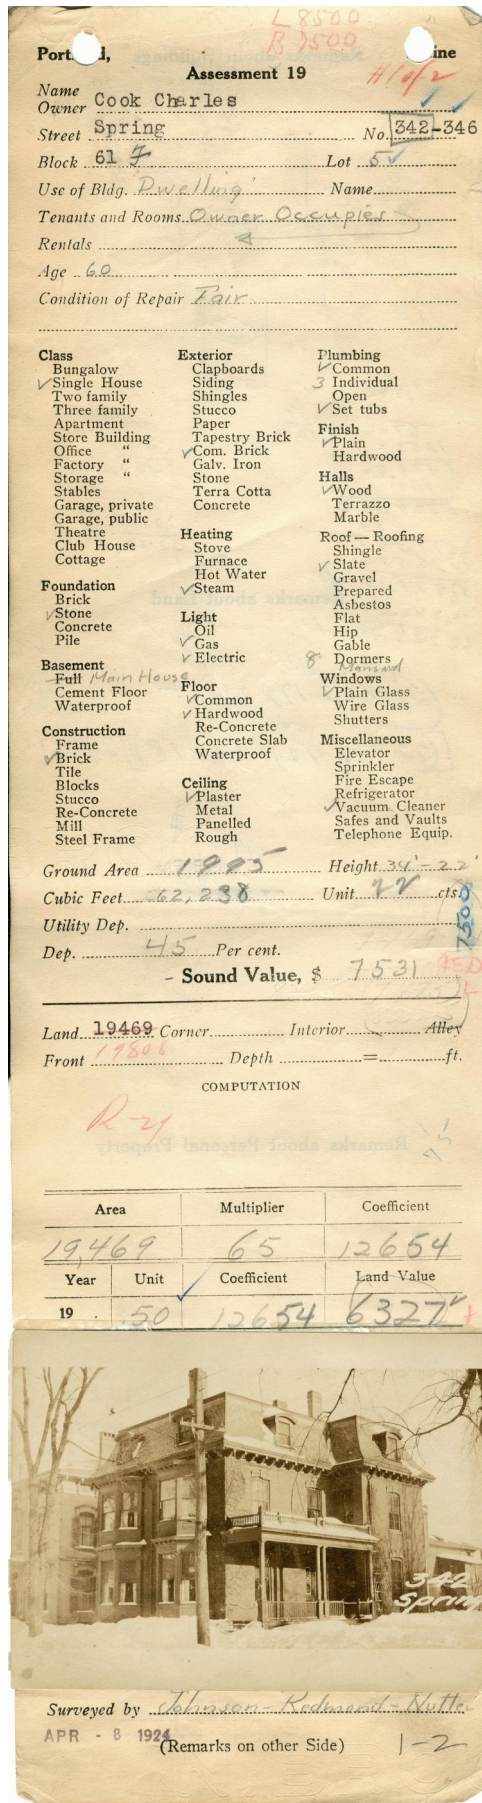 L 8500
B 7500
Portland, Maine
Assessment 19
Name
Owner Cook Charles
Street Spring No. 342-346
Block 61 7 Lot 5
Use of Bldg. Dwelling Name
Tenants and Rooms Owner Occupies
Rentals
Age 60
Condition of Repair Fair
Class
Bungalow
Single House
Two family
Three family
Apartment
Store Building
Office "
Factory "
Storage "
Stables
Garage, private
Garage, public
Theatre
Club House
Cottage
Foundation
Brick
Stone
Concrete
Pile
Basement
Full Main House
Cement Floor
Waterproof
Construction
Frame
Brick
Tile
Blocks
Stucco
Re-Concrete
Mill
Steel Frame
Exterior
Clapboards
Siding
Shingles
Stucco
Paper
Tapestry Brick
Com. Brick
Galv. Iron
Stone
Terra Cotta
Concrete
Heating
Stove
Furnace
Hot Water
Steam
Light
Oil
Gas
Electric
Floor
Common
Hardwood
Re-Concrete
Concrete Slab
Waterproof
Ceiling
Plaster
Metal
Panelled
Rough
Plumbing
Common
3 Individual
Open
Set tubs
Finish
Plain
Hardwood
Halls
Wood
Terrazzo
Marble
Roof — Roofing
Shingle
Slate
Gravel
Prepared
Asbestos
Flat
Hip
Gable
8 Dormers
Mansard
Windows
Plain Glass
Wire Glass
Shutters
Miscellaneous
Elevator
Sprinkler
Fire Escape
Refrigerator
Vacuum Cleaner
Safes and Vaults
Telephone Equip.
Ground Area 1995 Height 34'-22'
Cubic Feet 62,238 Unit 22 cts.
7500
Utility Dep.
Dep. 45 Per cent.
Sound Value, $ 7531
Land 19469 Corner Interior Alley
Front 19808 Depth = ft.
COMPUTATION
R-21
75
Area Multiplier Coefficient
19,469 65 12654
Year Unit Coefficient Land Value
19 50 12654 6327
342
Sprin
Surveyed by Johnson-Redmond-Nutter
APR - 8 1924
(Remarks on other Side) 1-2